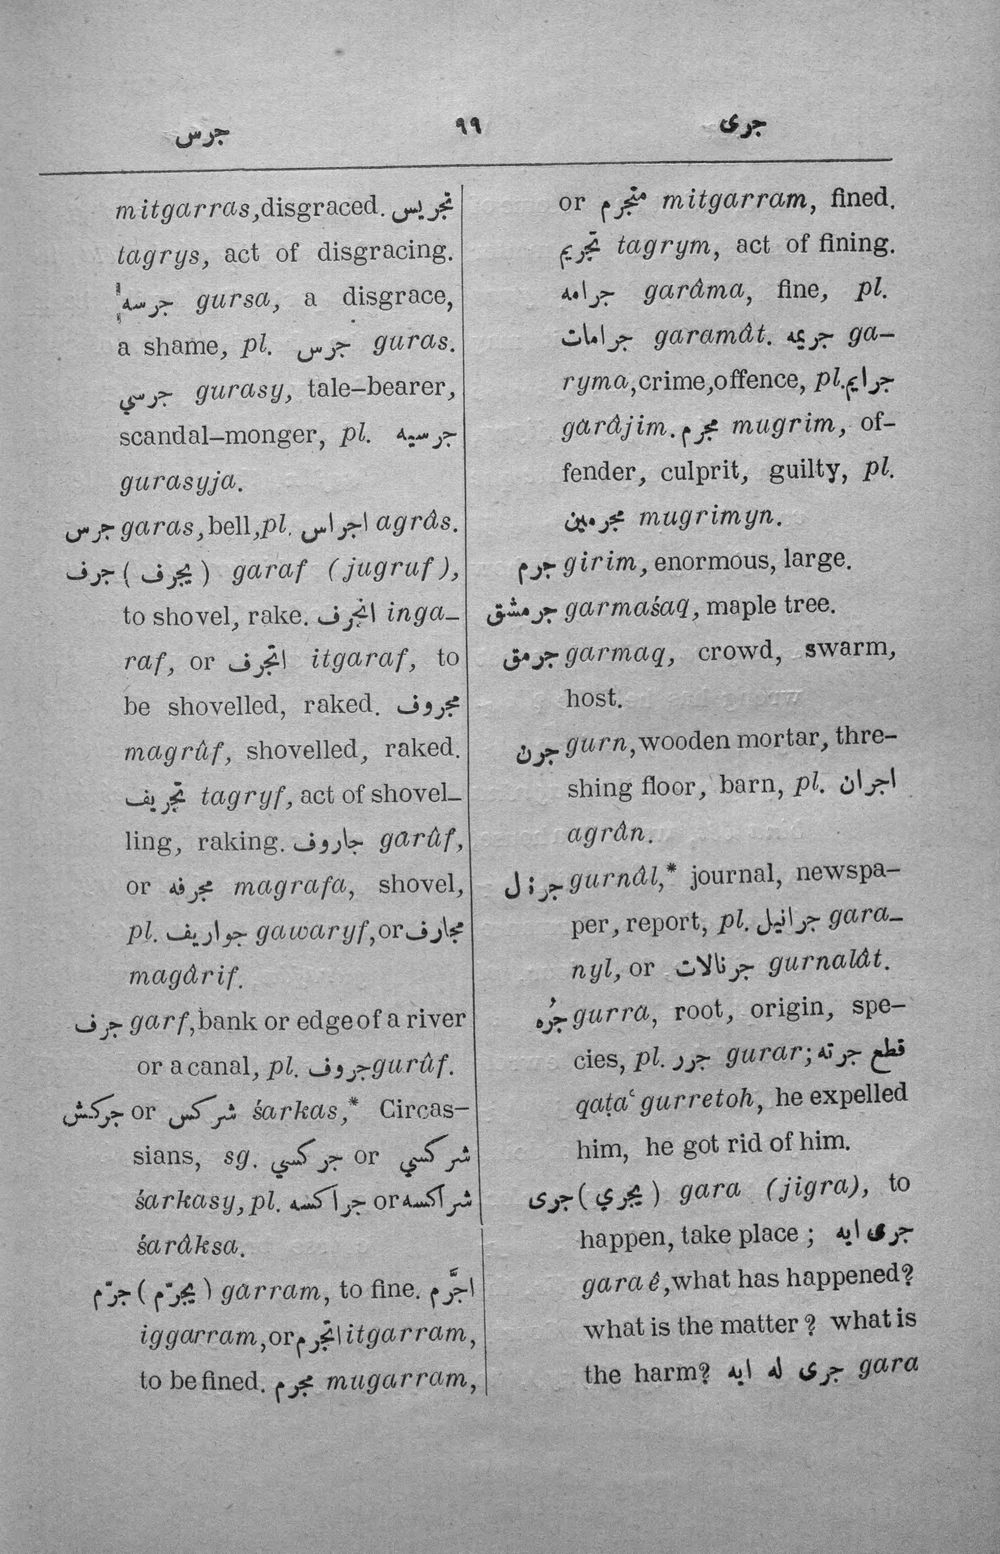 جرس ٩٩ جرى
mitgarras, disgraced. تجريس
tagrys, act of disgracing.
جرسه gursa, a disgrace,
a shame, pl. جرس guras.
جرسي gurasy, tale–bearer,
scandal–monger, pl. جرسيه
gurasyja.
جرس garas, bell, pl. اجراس agrâs.
جرف ( يجرف ) garaf (jugruf),
to shovel, rake. انجرف inga–
raf, or اتجرف itgaraf, to
be shovelled, raked. مجروف
magrûf, shovelled, raked.
تجريف tagryf, act of shovel–
ling, raking. جاروف garûf,
or مجرفه magrafa, shovel,
pl. جواريف gawaryf, or مجارف
magârif.
جرف garf, bank or edge of a river
or a canal, pl. جروف gurûf.
جركش or شركس śarkas,* Circas–
sians, sg. جركسي or شركسي
śarkasy, pl. جراكسه or شراكسه
śarâksa.
جرّم ( يجرّم ) garram, to fine. اجَّرم
iggarram, or اتجرم itgarram,
to be fined. مجرم mugarram,
or متجرم mitgarram, fined.
تجريم tagrym, act of fining.
جرامه garâma, fine, pl.
جرامات garamât. جريمه ga–
ryma, crime, offence, pl. جرايم
garâjim. مجرم mugrim, of–
fender, culprit, guilty, pl.
مجرمين mugrimyn.
جرم girim, enormous, large.
جرمشق garmaśaq, maple tree.
جرمق garmaq, crowd, swarm,
host.
جرن gurn, wooden mortar, thre–
shing floor, barn, pl. اجران
agrân.
gurnâl,* journal, newspa–
per, report, pl. جرانيل gara–
nyl, or جرنالات gurnalât.
جُره gurra, root, origin, spe–
cies, pl. جرر gurar; قطع جرته
qaṭaʿ gurretoh, he expelled
him, he got rid of him.
جرى ( يجري ) gara (jigra), to
happen, take place ; جرى ايه
gara ê, what has happened?
what is the matter? what is
the harm? جرى له ايه gara